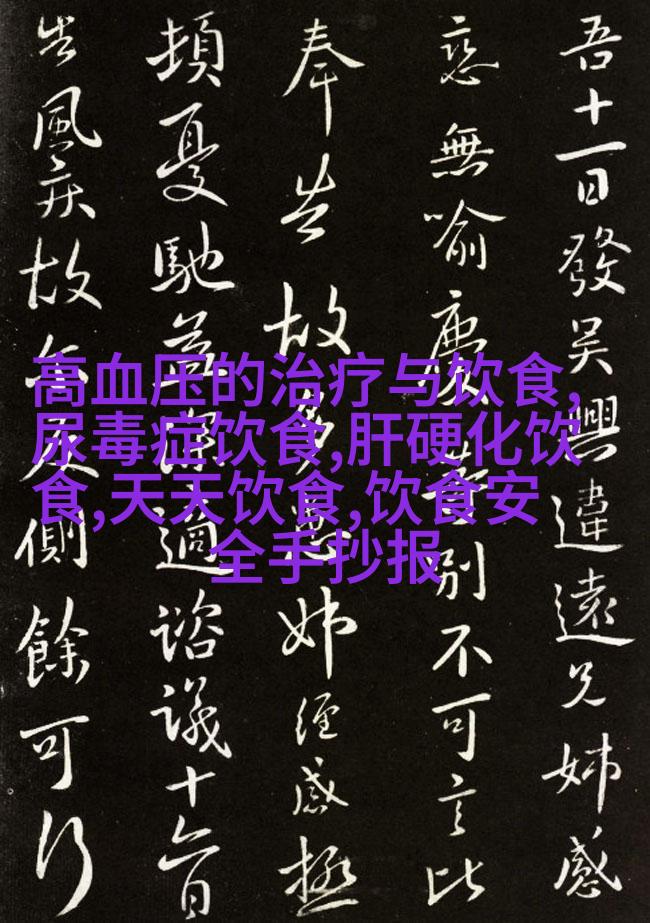 吾十一日發吳興違遠兄姊感
戀無喻慶等別不可言比
奉告故多患姊經感極
頓憂馳益適諮議十六日
告風疾故爾反側餘可行
高血压的治疗与饮食,
尿毒症饮食,肝硬化饮
食,天天饮食,饮食安
全手抄报